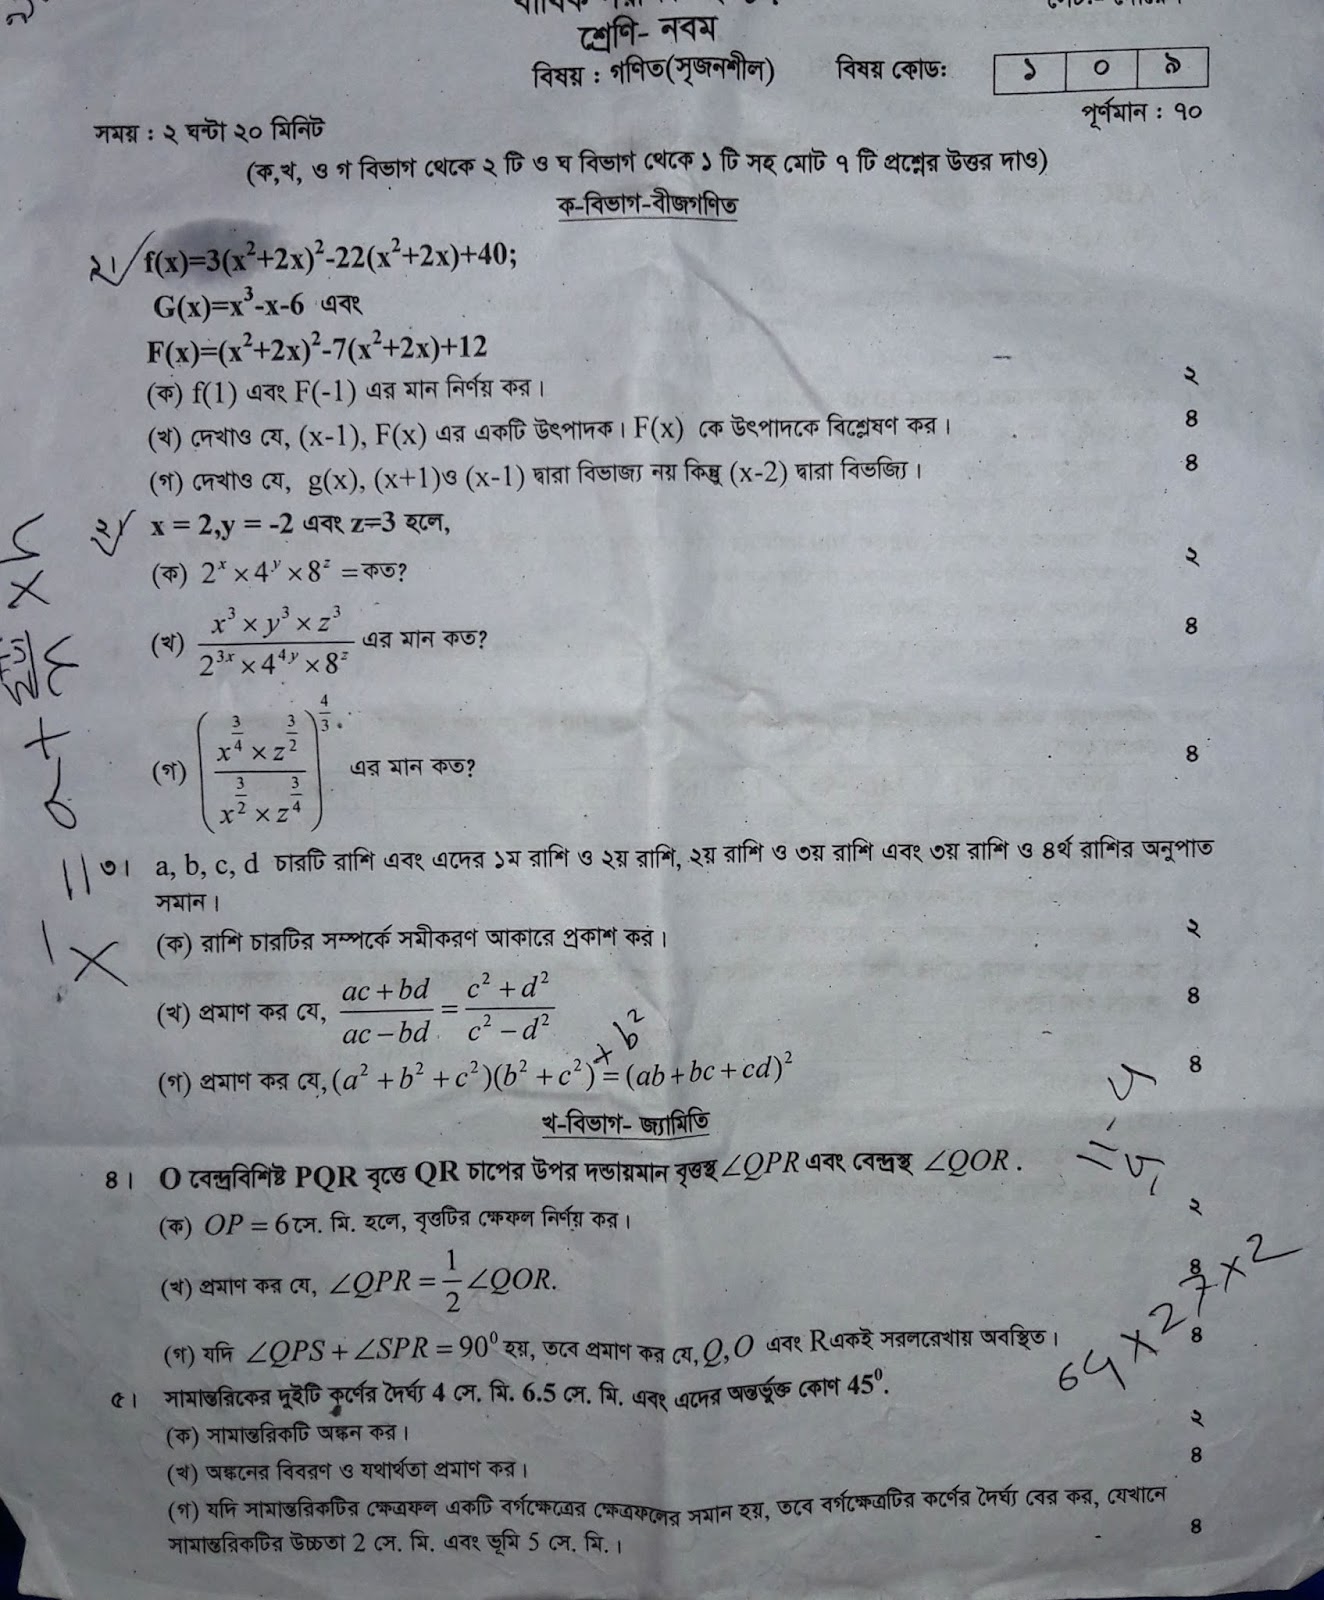 শ্রেণি- নবম
বিষয় : গণিত(সৃজনশীল) বিষয় কোডঃ ১ ০ ৯
পূর্ণমান : ৭০
সময় : ২ ঘন্টা ২০ মিনিট
(ক,খ, ও গ বিভাগ থেকে ২ টি ও ঘ বিভাগ থেকে ১ টি সহ মোট ৭ টি প্রশ্নের উত্তর দাও)
ক-বিভাগ-বীজগণিত
f(x)=3(x²+2x)²-22(x²+2x)+40;
G(x)=x³-x-6 এবং
F(x)=(x²+2x)²-7(x²+2x)+12
(ক) f(1) এবং F(-1) এর মান নির্ণয় কর। ২
(খ) দেখাও যে, (x-1), F(x) এর একটি উৎপাদক। F(x) কে উৎপাদকে বিশ্লেষণ কর। ৪
(গ) দেখাও যে, g(x), (x+1)ও (x-1) দ্বারা বিভাজ্য নয় কিন্তু (x-2) দ্বারা বিভজ্যি। ৪
২। x = 2,y = -2 এবং z=3 হলে,
(ক) 2^x ×4^y ×8^z = কত? ২
(খ) (x³ × y³ × z³)/(2^{3x} ×4^{4y} ×8^z) এর মান কত? ৪
(গ) ((x^{3/4} × z^{3/2})/(x^{3/2} × z^{3/4}))^{4/3} এর মান কত? ৪
৩। a, b, c, d চারটি রাশি এবং এদের ১ম রাশি ও ২য় রাশি, ২য় রাশি ও ৩য় রাশি এবং ৩য় রাশি ও ৪র্থ রাশির অনুপাত
সমান।
(ক) রাশি চারটির সম্পর্কে সমীকরণ আকারে প্রকাশ কর। ২
(খ) প্রমাণ কর যে, (ac+bd)/(ac−bd) = (c²+d²)/(c²−d²) ৪
+ b²
(গ) প্রমাণ কর যে, (a² +b² +c²)(b² +c²) = (ab+bc+cd)² ৪
খ-বিভাগ- জ্যামিতি
৪। O কেন্দ্রবিশিষ্ট PQR বৃত্তে QR চাপের উপর দন্ডায়মান বৃত্তস্থ ∠QPR এবং কেন্দ্রস্থ ∠QOR.
(ক) OP = 6সে. মি. হলে, বৃত্তটির ক্ষেফল নির্ণয় কর। ২
(খ) প্রমাণ কর যে, ∠QPR = 1/2 ∠QOR. ৪
(গ) যদি ∠QPS + ∠SPR = 90⁰ হয়, তবে প্রমাণ কর যে, Q,O এবং R একই সরলরেখায় অবস্থিত। ৪
64 × 27 × 2
৫। সামান্তরিকের দুইটি কর্ণের দৈর্ঘ্য 4 সে. মি. 6.5 সে. মি. এবং এদের অন্তর্ভূক্ত কোণ 45⁰.
(ক) সামান্তরিকটি অঙ্কন কর। ২
(খ) অঙ্কনের বিবরণ ও যথার্থতা প্রমাণ কর। ৪
(গ) যদি সামান্তরিকটির ক্ষেত্রফল একটি বর্গক্ষেত্রের ক্ষেত্রফলের সমান হয়, তবে বর্গক্ষেত্রটির কর্ণের দৈর্ঘ্য বের কর, যেখানে
সামান্তরিকটির উচ্চতা 2 সে. মি. এবং ভূমি 5 সে. মি.। ৪